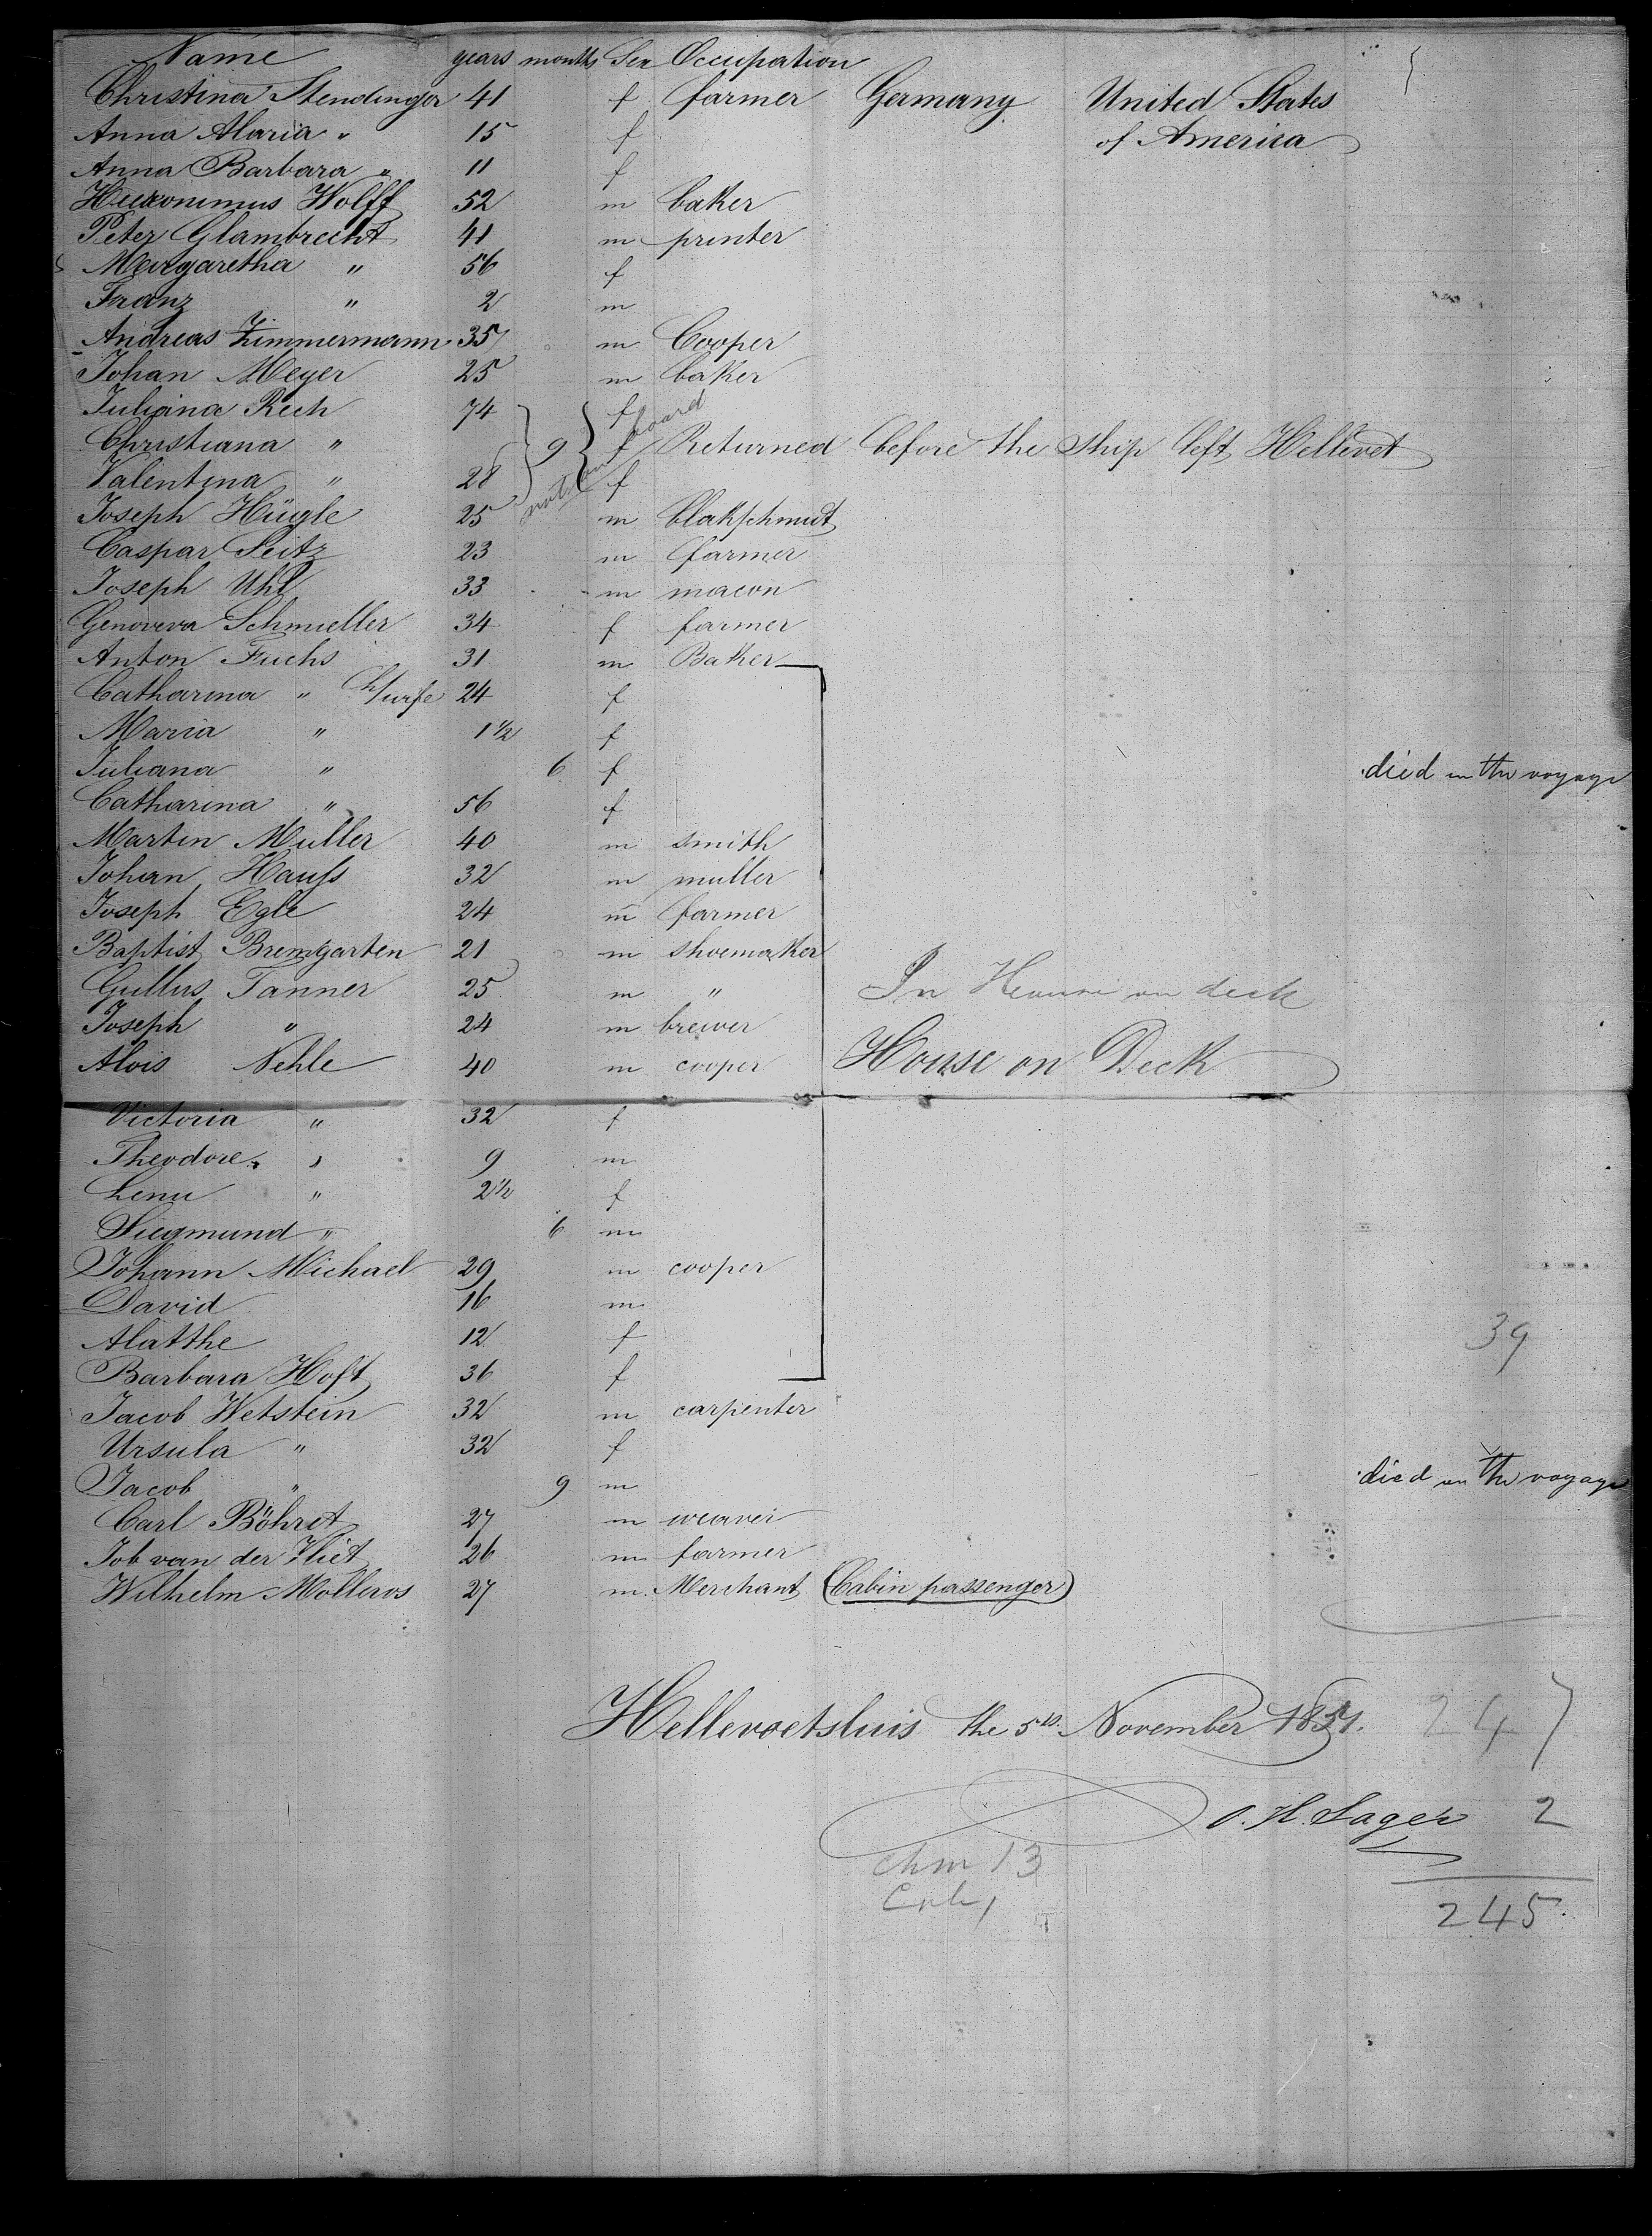 Name years months Sex Occupation
Christina Stendinger 41 f farmer Germany United States
of America
Anna Maria " 15 f
Anna Barbara " 11 f
Hieronimus Wolff 52 m baker
Peter Glambrecht 41 m printer
Margaretha " 56 f
Franz " 2 m
Andreas Zimmermann 35 m Cooper
Johan Meyer 25 m baker
Juliana Rech 74 f
Christiana " 9 f Returned before the Ship left Hellevet
not on board
Valentina " 28 f
Joseph Hügle 25 m blakschmit
Caspar Seitz 23 m farmer
Joseph Uhl 33 m macon
Genoveva Schmieller 34 f farmer
Anton Fuchs 31 m Baker
Catharina " h/wife 24 f
Maria " 1 1/2 f
Juliana " 6 f died on the voyage
Catharina " 56 f
Martin Muller 40 m smith
Johan Hauss 32 m muller
Joseph Egle 24 m farmer
Baptist Bremgarten 21 m shoemaker
Gullus Tanner 25 m " In House on deck
Joseph " 24 m brewer
Alois Nehle 40 m cooper House on Deck
Victoria " 32 f
Theodore " 9 m
Lenu " 2 1/2 f
Siegmund " 6 m
Johann Michael 29 m cooper
David 16 m
Matthe 12 f 39
Barbara Hoft 36 f
Jacob Wetstein 32 m carpenter
Ursula " 32 f
Jacob " 9 m died on the voyage
Carl Böhret 27 m weaver
Job van der Vliet 26 m farmer
Wilhelm Molleros 27 m. Merchant (Cabin passenger)
Hellevoetsluis the 5th November 1857. 247
O. H. Sager 2
chm 13
245.